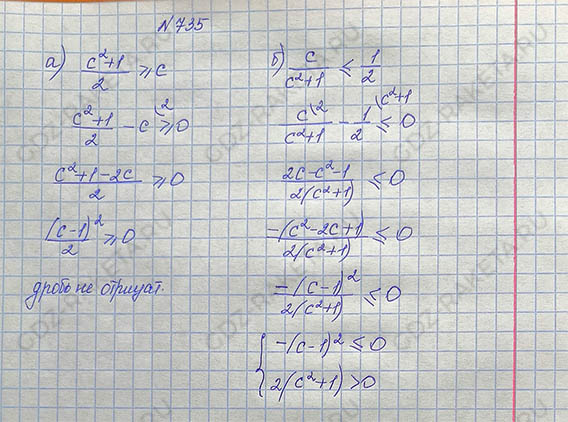 №735
а) (c²+1)/2 ≥ c
(c²+1)/2 - c\² ≥ 0
(c²+1-2c)/2 ≥ 0
(c-1)²/2 ≥ 0
дробь не отрицат.
б) c/(c²+1) ≤ 1/2
c\²/(c²+1) - 1\c²+1/2 ≤ 0
(2c-c²-1)/2(c²+1) ≤ 0
-(c²-2c+1)/2(c²+1) ≤ 0
-(c-1)²/2(c²+1) ≤ 0
{ -(c-1)² ≤ 0
2(c²+1) > 0
GDZ-RAKETA.RU